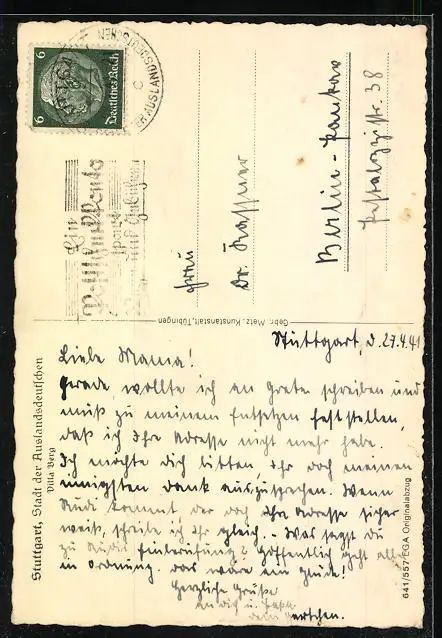 6
6
Deutsches Reich
DER AUSLANDSDEUTSCHEN
Ein
Postscheckkonto
spart
Frau
Dr. Kassner
Berlin-Pankow
Pestalozzistr. 38
Gebr. Metz, Kunstanstalt, Tübingen
Stuttgart, Stadt der Auslandsdeutschen
Villa Berg
641/557 EGA Originalabzug
Stuttgart, d. 27.4.41
Liebe Mama!
Gerade wollte ich an Grete schreiben und
muß zu meinem Entsetzen feststellen,
daß ich Ihre Adresse nicht mehr habe.
Ich möchte dich bitten, Ihr doch meinen
innigsten Dank auszusprechen. Wenn
Rudi kommt der doch ihre Adresse sicher
weiß, schreibe ich Ihr gleich. - Was sagst du
zu Rudis Einberufung? Hoffentlich geht alles
in Ordnung. Das wäre ein Glück!
Herzliche Grüße
an dich u. Papa
dein